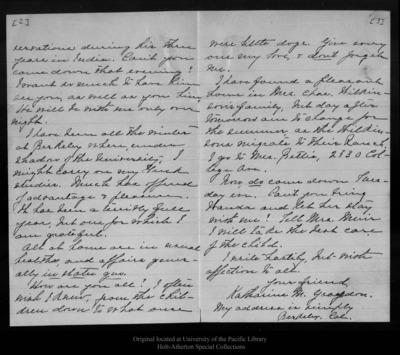 [2]
ervations during his three
years in India. Can't you
come down that evening?
I want so much to have him
see you, as well as you him.
He will be with me only over
night.
I have been all the winter
at Berkeley where, under
shadow of the University, I
might carry on my Greek
studies. Much has offered
of advantage & pleasure.
It has been a terribly full
year, but one for which I
am grateful.
All at home are in usual
health and affairs gener-
ally in statu quo.
How are you all? I often
wish I knew, from the chil-
dren down to what once
[3]
were little dogs. Give every
one my love, & don't forget
me.
I have found a pleasant
home in Mrs. Chas.
family, but day after
tomorrow am to change for
the summer, as the
migrate to their Ranch.
I go to Mrs. Bettis, 2530 Col-
lege Ave.
Now do come down Tues-
day eve. Can't you bring
Wanda and let her stay
with me? Tell Mrs. Muir
I will take the best care
of the child.
I write hastily, but with
affection to all.
Your friend,
Katharine M. Graydon.
My address is simply
Berkeley, Cal.
Original located at University of the Pacific Library
Holt-Atherton Special Collections